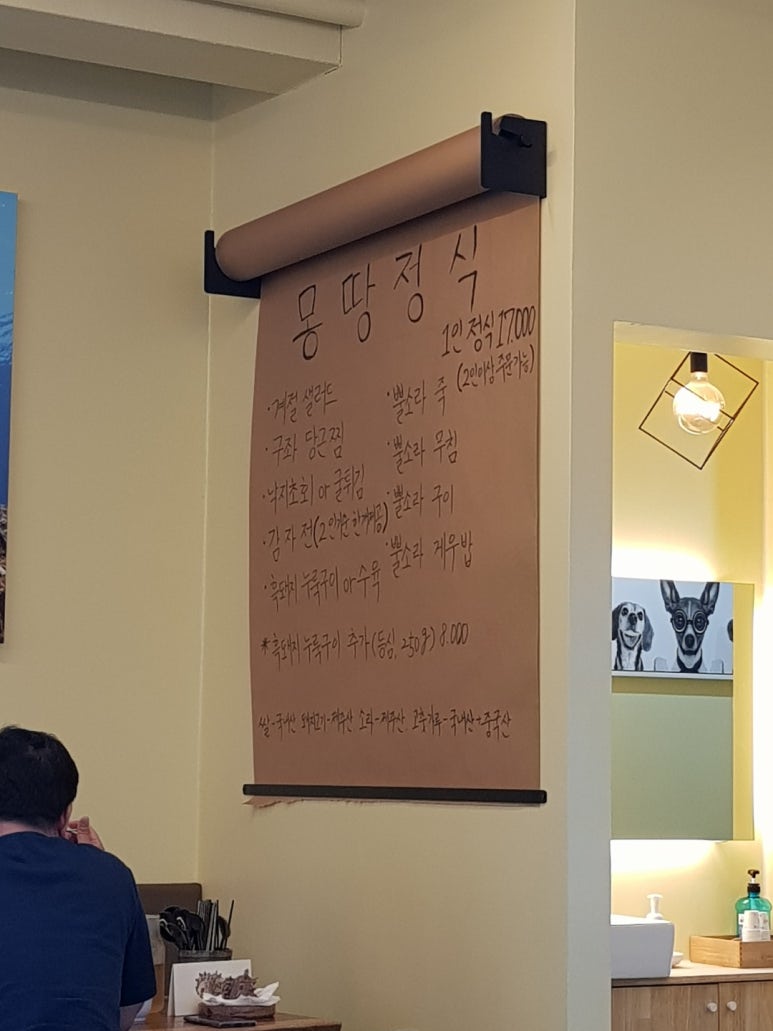 몽땅정식
1인 정식 17.000
(2인이상 주문가능)
· 계절 샐러드
· 구좌 당근찜
· 낙지초회 or 굴튀김
· 감자전(2인기준 한개제공)
· 흑돼지 누룩구이 or 수육
· 뿔소라 죽
· 뿔소라 무침
· 뿔소라 구이
· 뿔소라 게우밥
* 흑돼지 누룩구이 추가 (등심, 250g) 8.000
쌀-국내산 돼지고기-제주산 소라-제주산 고춧가루-국내산+중국산